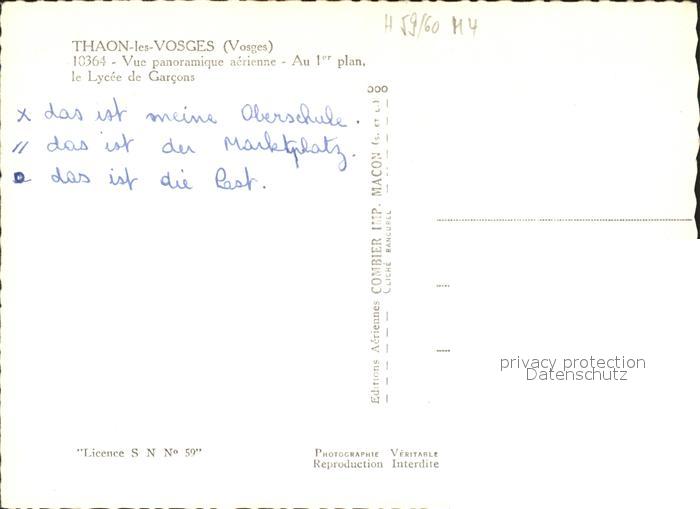 H 59/60 M 4
THAON-les-VOSGES (Vosges)
10364 - Vue panoramique aérienne - Au 1er plan,
le Lycée de Garçons
x das ist meine Oberschule.
// das ist der Marktplatz.
das ist die Post.
Editions Aériennes COMBIER IMP. MACON (S. et L.)
CLICHÉ RANCUREL
privacy protection
Datenschutz
"Licence S N No 59"
PHOTOGRAPHIE VÉRITABLE
Reproduction Interdite